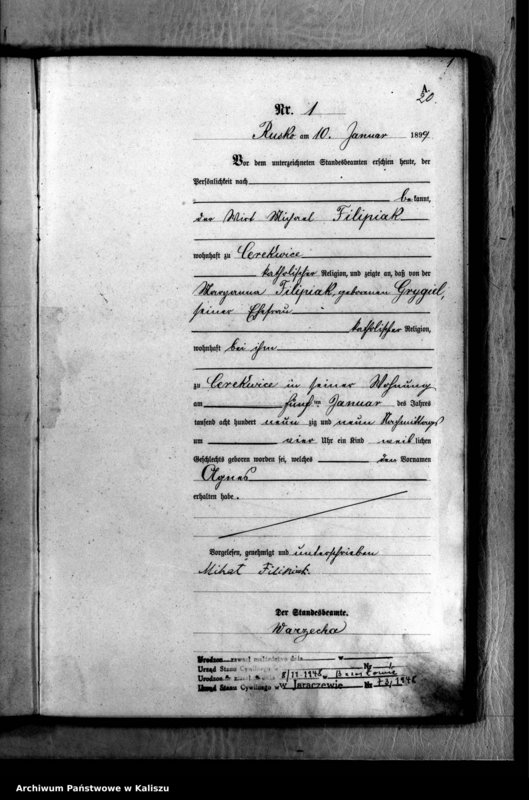 20.
Nr. 1
Rusko am 10. Januar 1899
Vor dem unterzeichneten Standesbeamten erschien heute, der
Persönlichkeit nach
bekannt,
der Wirt Michael Filipiak
wohnhaft zu Cerekwice
katholischer Religion, und zeigte an, daß von der
Maryanna Filipiak, geborenen Grygiel,
seiner Ehefrau
katholischer Religion,
wohnhaft bei ihm
zu Cerekwice in seiner Wohnung
am fünften Januar des Jahres
tausend acht hundert neun zig und neun Nachmittags
um vier Uhr ein Kind weiblichen
Geschlechts geboren worden sei, welches den Vornamen
Agnes
erhalten habe.
Vorgelesen, genehmigt und unterschrieben
Filipiak
Der Standesbeamte.
Warzecha
zawarł małżeństwo dnia w
Urząd Stanu Cywilnego w Nr
8/11 1946 w
Urząd Stanu Cywilnego w Jaraczewie Nr 73/1946
Archiwum Państwowe w Kaliszu